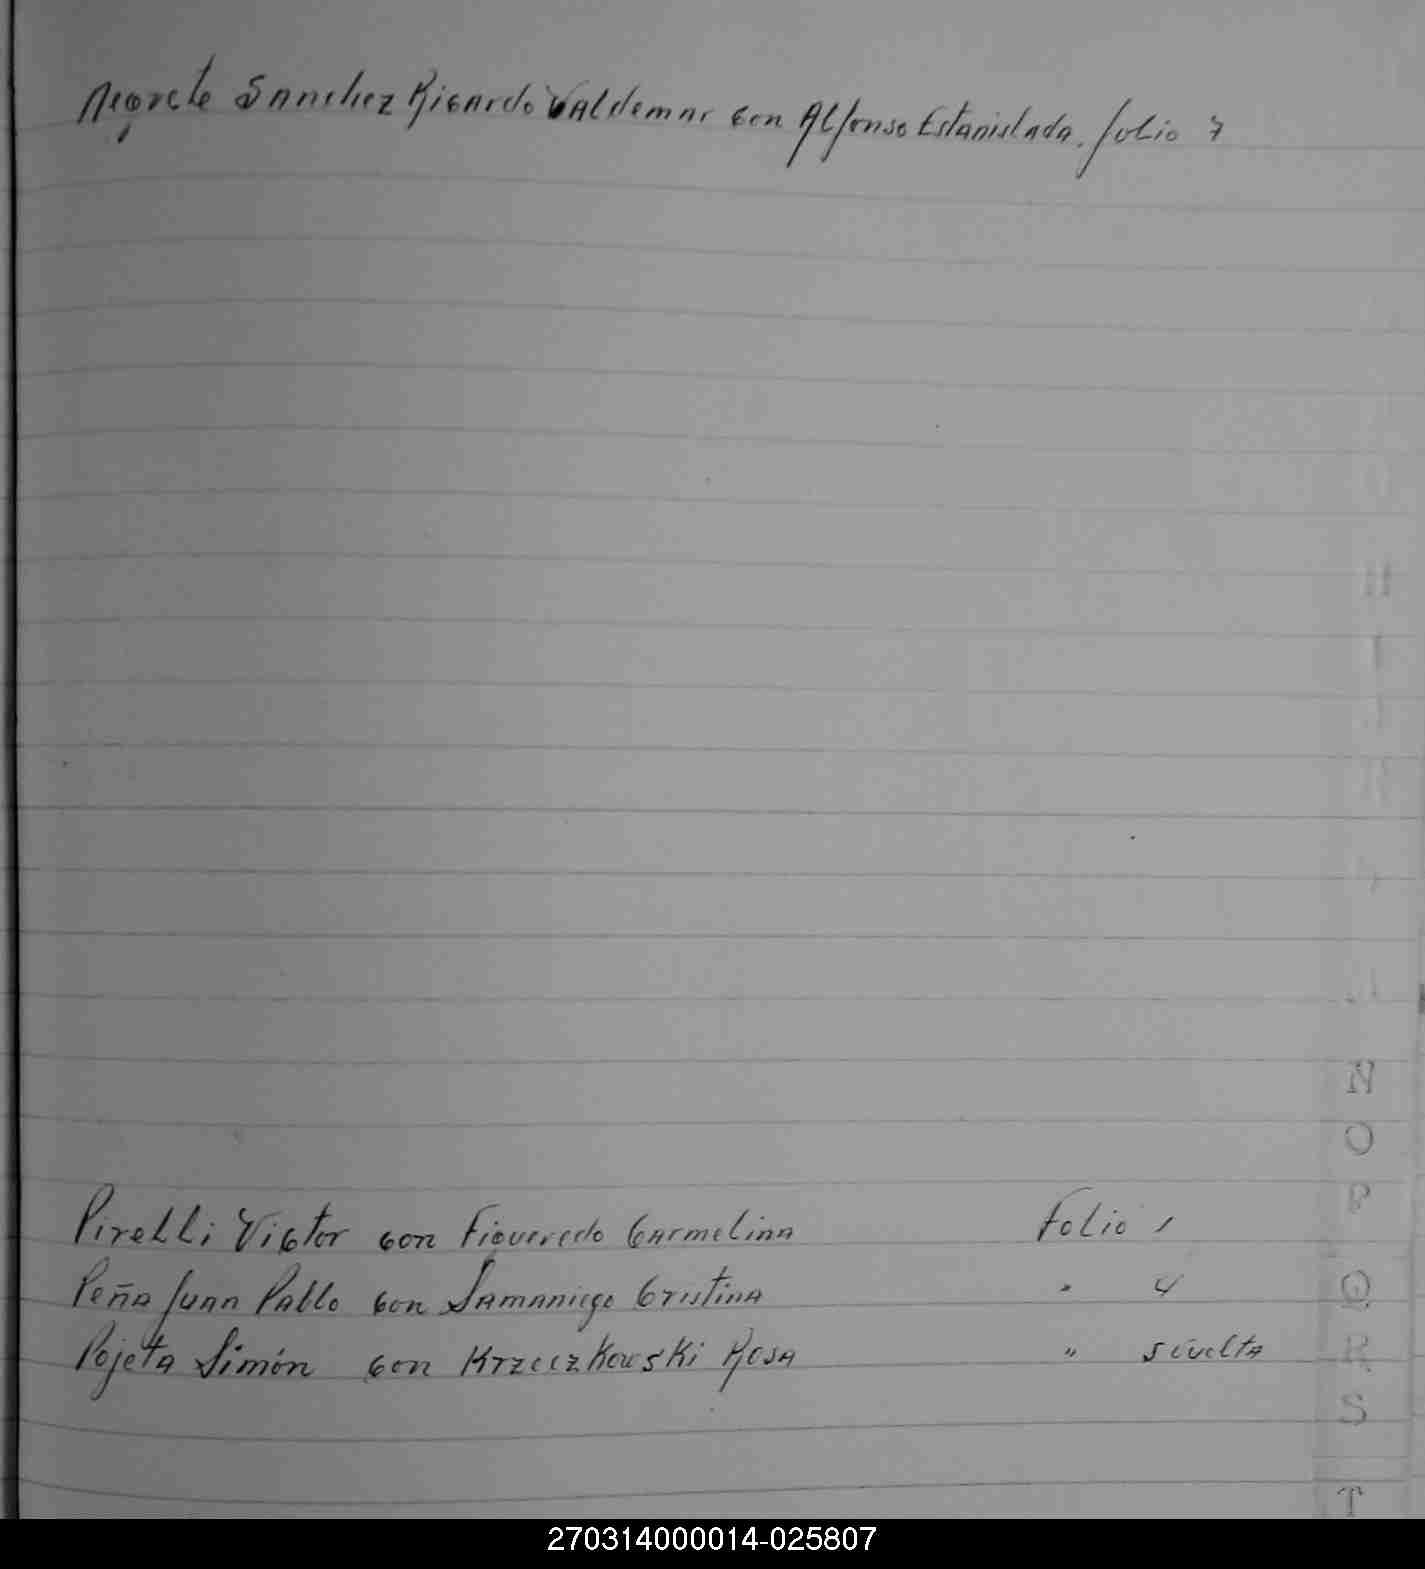 Negrete Sanchez Ricardo Valdemar con Alfonso Estanislada. folio 7
H
I
N
O
P
Pirelli Victor con Figueredo Carmelina Folio 1
Peña Juan Pablo con Samaniego Cristina " 4
Q
Pojeta Simón con Krzeczkowski Rosa " suelta
R
S
T
270314000014-025807